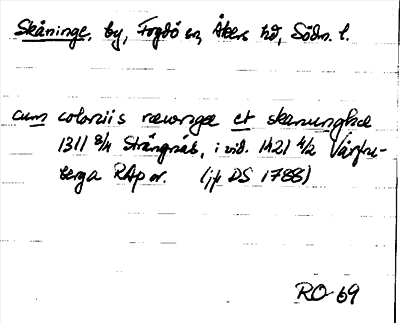 Skåninge, by, Fogdö sn, Åkers hd, Södm. l.
cum coloniis ræwnge et skenunghæ
1311 8/4 Strängnäs, i vid. 1421 4/2 Vårfru-
berga RAp or. (jfr DS 1788)
RO 69